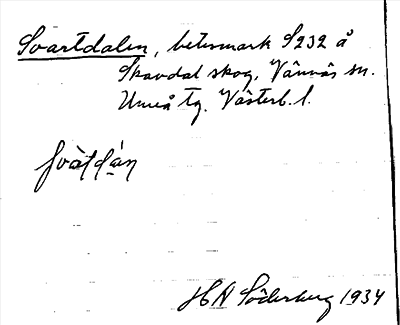 Svartdalen, betesmark S232 å
Skavdal skog, Vännäs sn.
Umeå tg. Västerb. l.
svàṭdạ́n
H A Söderberg 1934